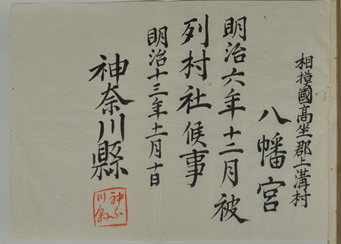 相摸國高坐郡上溝村
八幡宮
明治六年十二月被
列村社候事
明治十三年十二月十日
神奈川縣